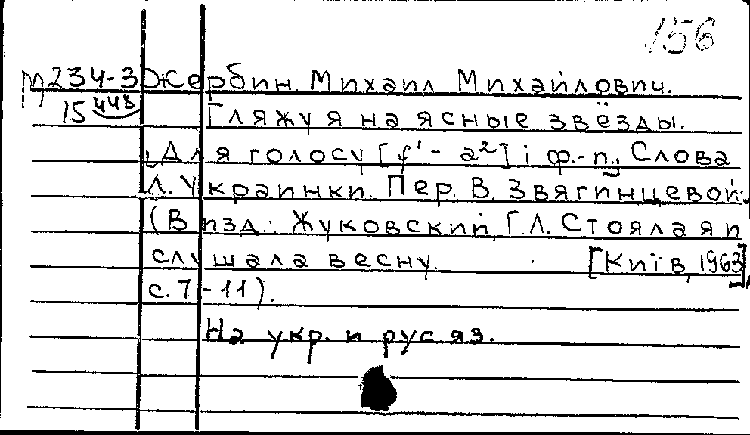 156
М 234-3 Жербин Михаил Михайлович.
15 443 Гляжу я на ясные звёзды.
Для голосу [f¹ - a²] і ф.-п. Слова
Л. Украинки. Пер. В. Звягинцевой.
(В изд: Жуковский, Г.Л. Стояла я и
слушала весну. [Київ, 1963],
с. 7-11).
На укр. и рус. яз.